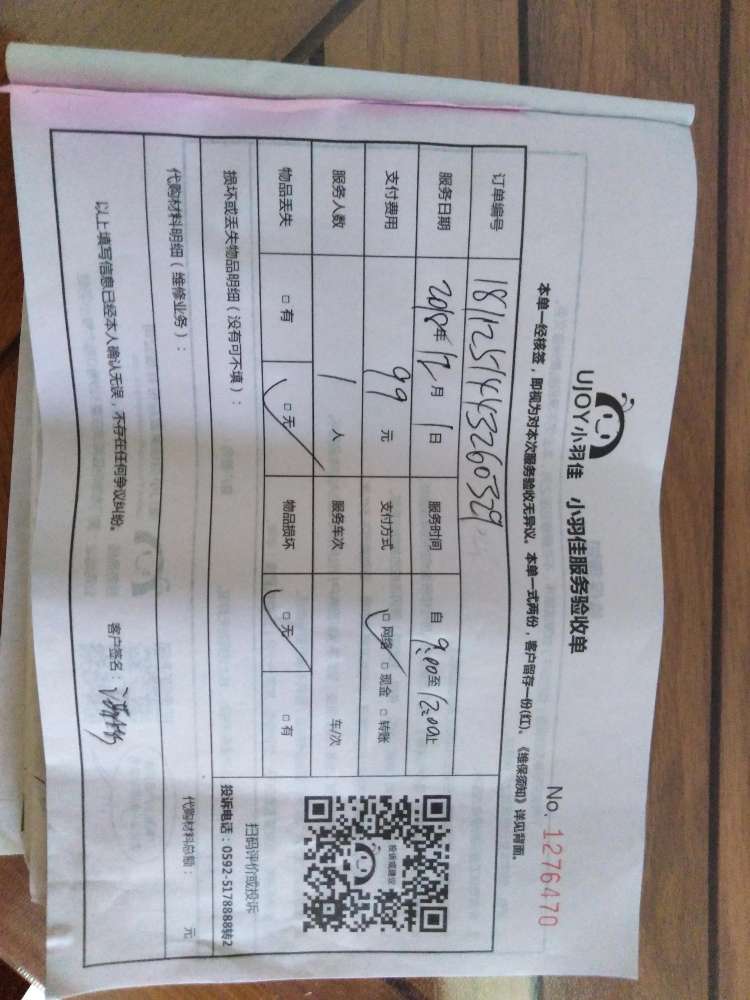 UJOY小羽佳 小羽佳服务验收单
No. 1276470
本单一经核签，即视为对本次服务验收无异议。本单一式两份，客户留存一份(红)。《维保须知》详见背面。
订单编号 18112514443260329
服务日期 2018年12月1日 服务时间 自9:00至12:00止
支付费用 99元 支付方式 □网络 □现金 □转账
服务人数 1人 服务车次 车/次
物品丢失 □有 □无 物品损坏 □无 □有
投诉或建议
扫码评价或投诉
投诉电话：0592-5178888转2
损坏或丢失物品明细（没有可不填）：
代购材料明细（维修业务）：
代购材料总额： 元
以上填写信息已经本人确认无误，不存在任何争议纠纷。 客户签名：